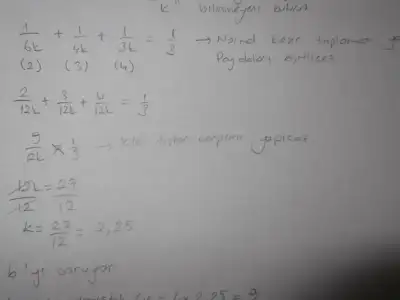 k'' bilinmeyeni bulunur
1/6k + 1/4k + 1/3k = 1/3 → Normal kesir toplaması
(2) (3) (4) Paydaları eşitlisez
2/12k + 3/12k + 4/12k = 1/3
9/12k × 1/3 → içler dışlar çarpımı yapılısez
12k/12 = 27/12
k = 27/12 = 2,25
b'yi soruyor
= 4 x 2,25 = 9